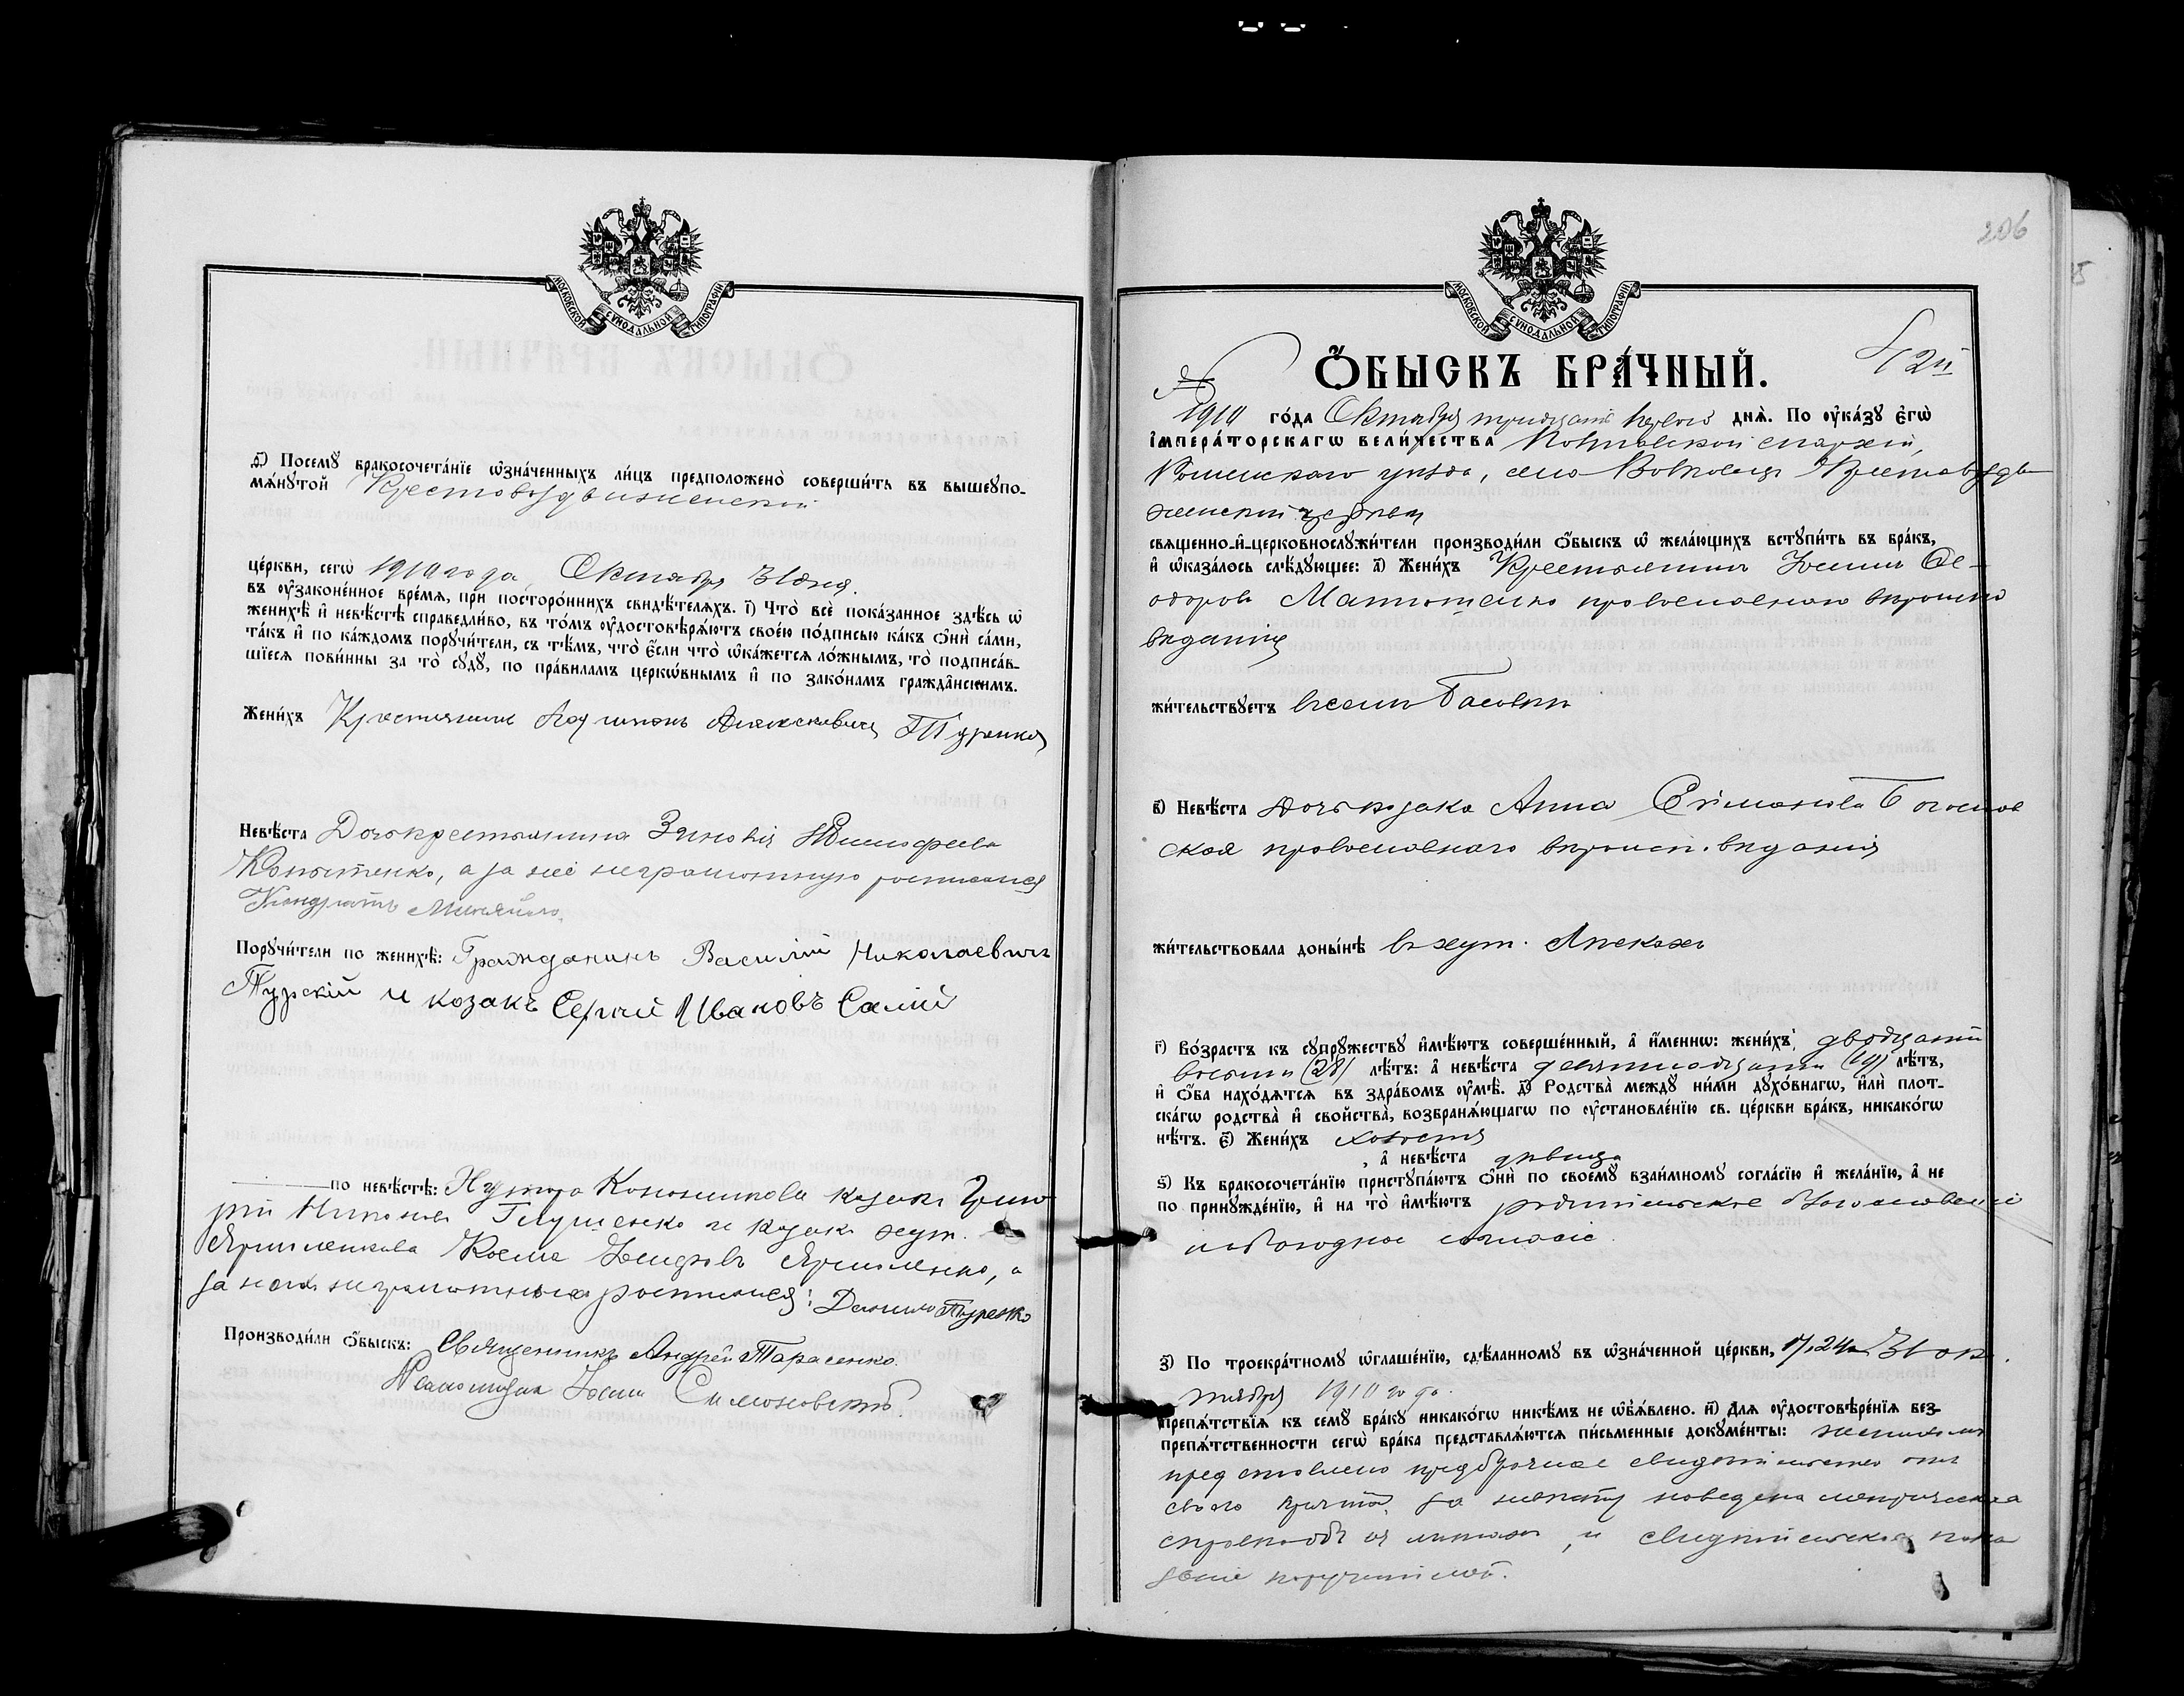 МОСКОВСКОЙ СѴНОДАЛЬНОЙ ТИПОГРАФІИ
ѳ҃) Посемꙋ̀ бракосочета́нїе ѡ҆зна́ченныхъ ли́цъ предположено̀ соверши́ть въ вышеꙋпо-
мѧ́нꙋтой Крестовоздвиженской
це́ркви, сегѡ̀ 1910 года, Октября 31 дня.
въ ᲂу҆зако́ненное вре́мѧ, при посторо́ннихъ свидѣ́телѧхъ. і҃) Что̀ всѐ пока́занное здѣ́сь ѡ҆
женихѣ̀ и҆ невѣ́стѣ справедли́во, въ то́мъ ᲂу҆достовѣрѧ́ютъ свое́ю по́дписью ка́къ ѻ҆нѝ са́ми,
та́къ и҆ по ка́ждомъ порꙋчи́тели, съ тѣ́мъ, что̀ є҆́сли что̀ ѡ҆ка́жетсѧ ло́жнымъ, то̀ подписа́в-
шїесѧ пови́нны за то̀ сꙋдꙋ̀, по пра́виламъ церкѡ́внымъ и҆ по зако́намъ гражда̂нскимъ.
Жени́хъ Крестьянинъ Алексѣевичъ Туренко
Невѣ́ста Дочь крестьянина Зиновія Тимофеева
а за неё неграмотную росписался
Кондратъ
Порꙋчи́тели по женихѣ̀: Гражданинъ Василій Николаевичъ
Турскій и козакъ Сергій Ивановъ Салій
по невѣ́стѣ: Хутора козакъ Григо
рій Глущенко и козакъ хут.
Ярмоленкова Косма Ярмоленко, а
за нихъ неграмотныхъ росписался: Данило Туренко
Производи́ли ѻ҆́быскъ: Священникъ Андрей Тарасенко.
Псаломщикъ Симоновскій
206
МОСКОВСКОЙ СѴНОДАЛЬНОЙ ТИПОГРАФІИ
Ѻ҆́БЫСКЪ БРА́ЧНЫЙ.
№ 42й
1910 го́да Октября тридцать перваго днѧ̀. По ᲂу҆ка́зꙋ є҆гѡ̀
і҆мпера́торскагѡ вели́чества Полтавской епархіи,
Роменскаго уѣзда, села Волковецъ Крестовоздви
женской церкви
свѧщенно-и҆-церковнослꙋжи́тели производи́ли ѻ҆́быскъ ѡ҆ жела́ющихъ встꙋпи́ть въ бра́къ,
и҆ ѡ҆каза́лось слѣ́дꙋющее: а҃) Жени́хъ Крестьянинъ Іосифъ Ѳе-
одоровъ Матюшенко православнаго вѣроиспо
вѣданія
жи́тельствꙋетъ въ селѣ Басовкѣ
в҃) Невѣ́ста дочь козака Анна Боголюб
ская православнаго вѣроисп. вѣданія
жи́тельствовала доны́нѣ въ хут.
г҃) Во́зрастъ къ сꙋпрꙋ́жествꙋ и҆мѣ́ютъ соверше́нный, а҆ и҆́меннѡ: жени́хъ двадцать
восемь (28) лѣ́тъ: а҆ невѣ́ста девятнадцать (19) лѣ́тъ,
и҆ ѻ҆́ба нахо́дѧтсѧ въ здра́вомъ ᲂу҆мѣ̀. д҃) Родства̀ междꙋ̀ ни́ми дꙋхо́внагѡ, и҆лѝ плот-
ска́гѡ родства̀ и҆ свойства̀, возбранѧ́ющагѡ по ᲂу҆становле́нїю св. це́ркви бра́къ, никако́гѡ
нѣ́тъ. є҃) Жени́хъ холостъ
, а҆ невѣ́ста дѣвица
ѕ҃) Къ бракосочета́нїю пристꙋпа́ютъ ѻ҆нѝ по своемꙋ̀ взаи́мномꙋ согла́сїю и҆ жела́нїю, а҆ не
по принꙋжде́нїю, и҆ на то̀ и҆мѣ́ютъ родительское благословеніе
и свободное согласіе.
з҃) По троекра́тномꙋ ѡ҆глаше́нїю, сдѣ́ланномꙋ въ ѡ҆зна́ченной це́ркви, 17, 24 и 31 ок
тября 1910 года.
препѧ́тствїѧ къ семꙋ̀ бра́кꙋ никако́гѡ никѣ́мъ не ѡ҆б̾ѧ́влено. и҃) Длѧ ᲂу҆достовѣре́нїѧ без-
препѧ́тственности сегѡ̀ бра́ка представлѧ́ютсѧ пи́сьменные докꙋме́нты: женихомъ
представлено предбрачное свидѣтельство отъ
своего причта, за невѣсту наведена метрическая
справка объ ея лѣтахъ, и свидѣтельское пока
заніе поручителей.